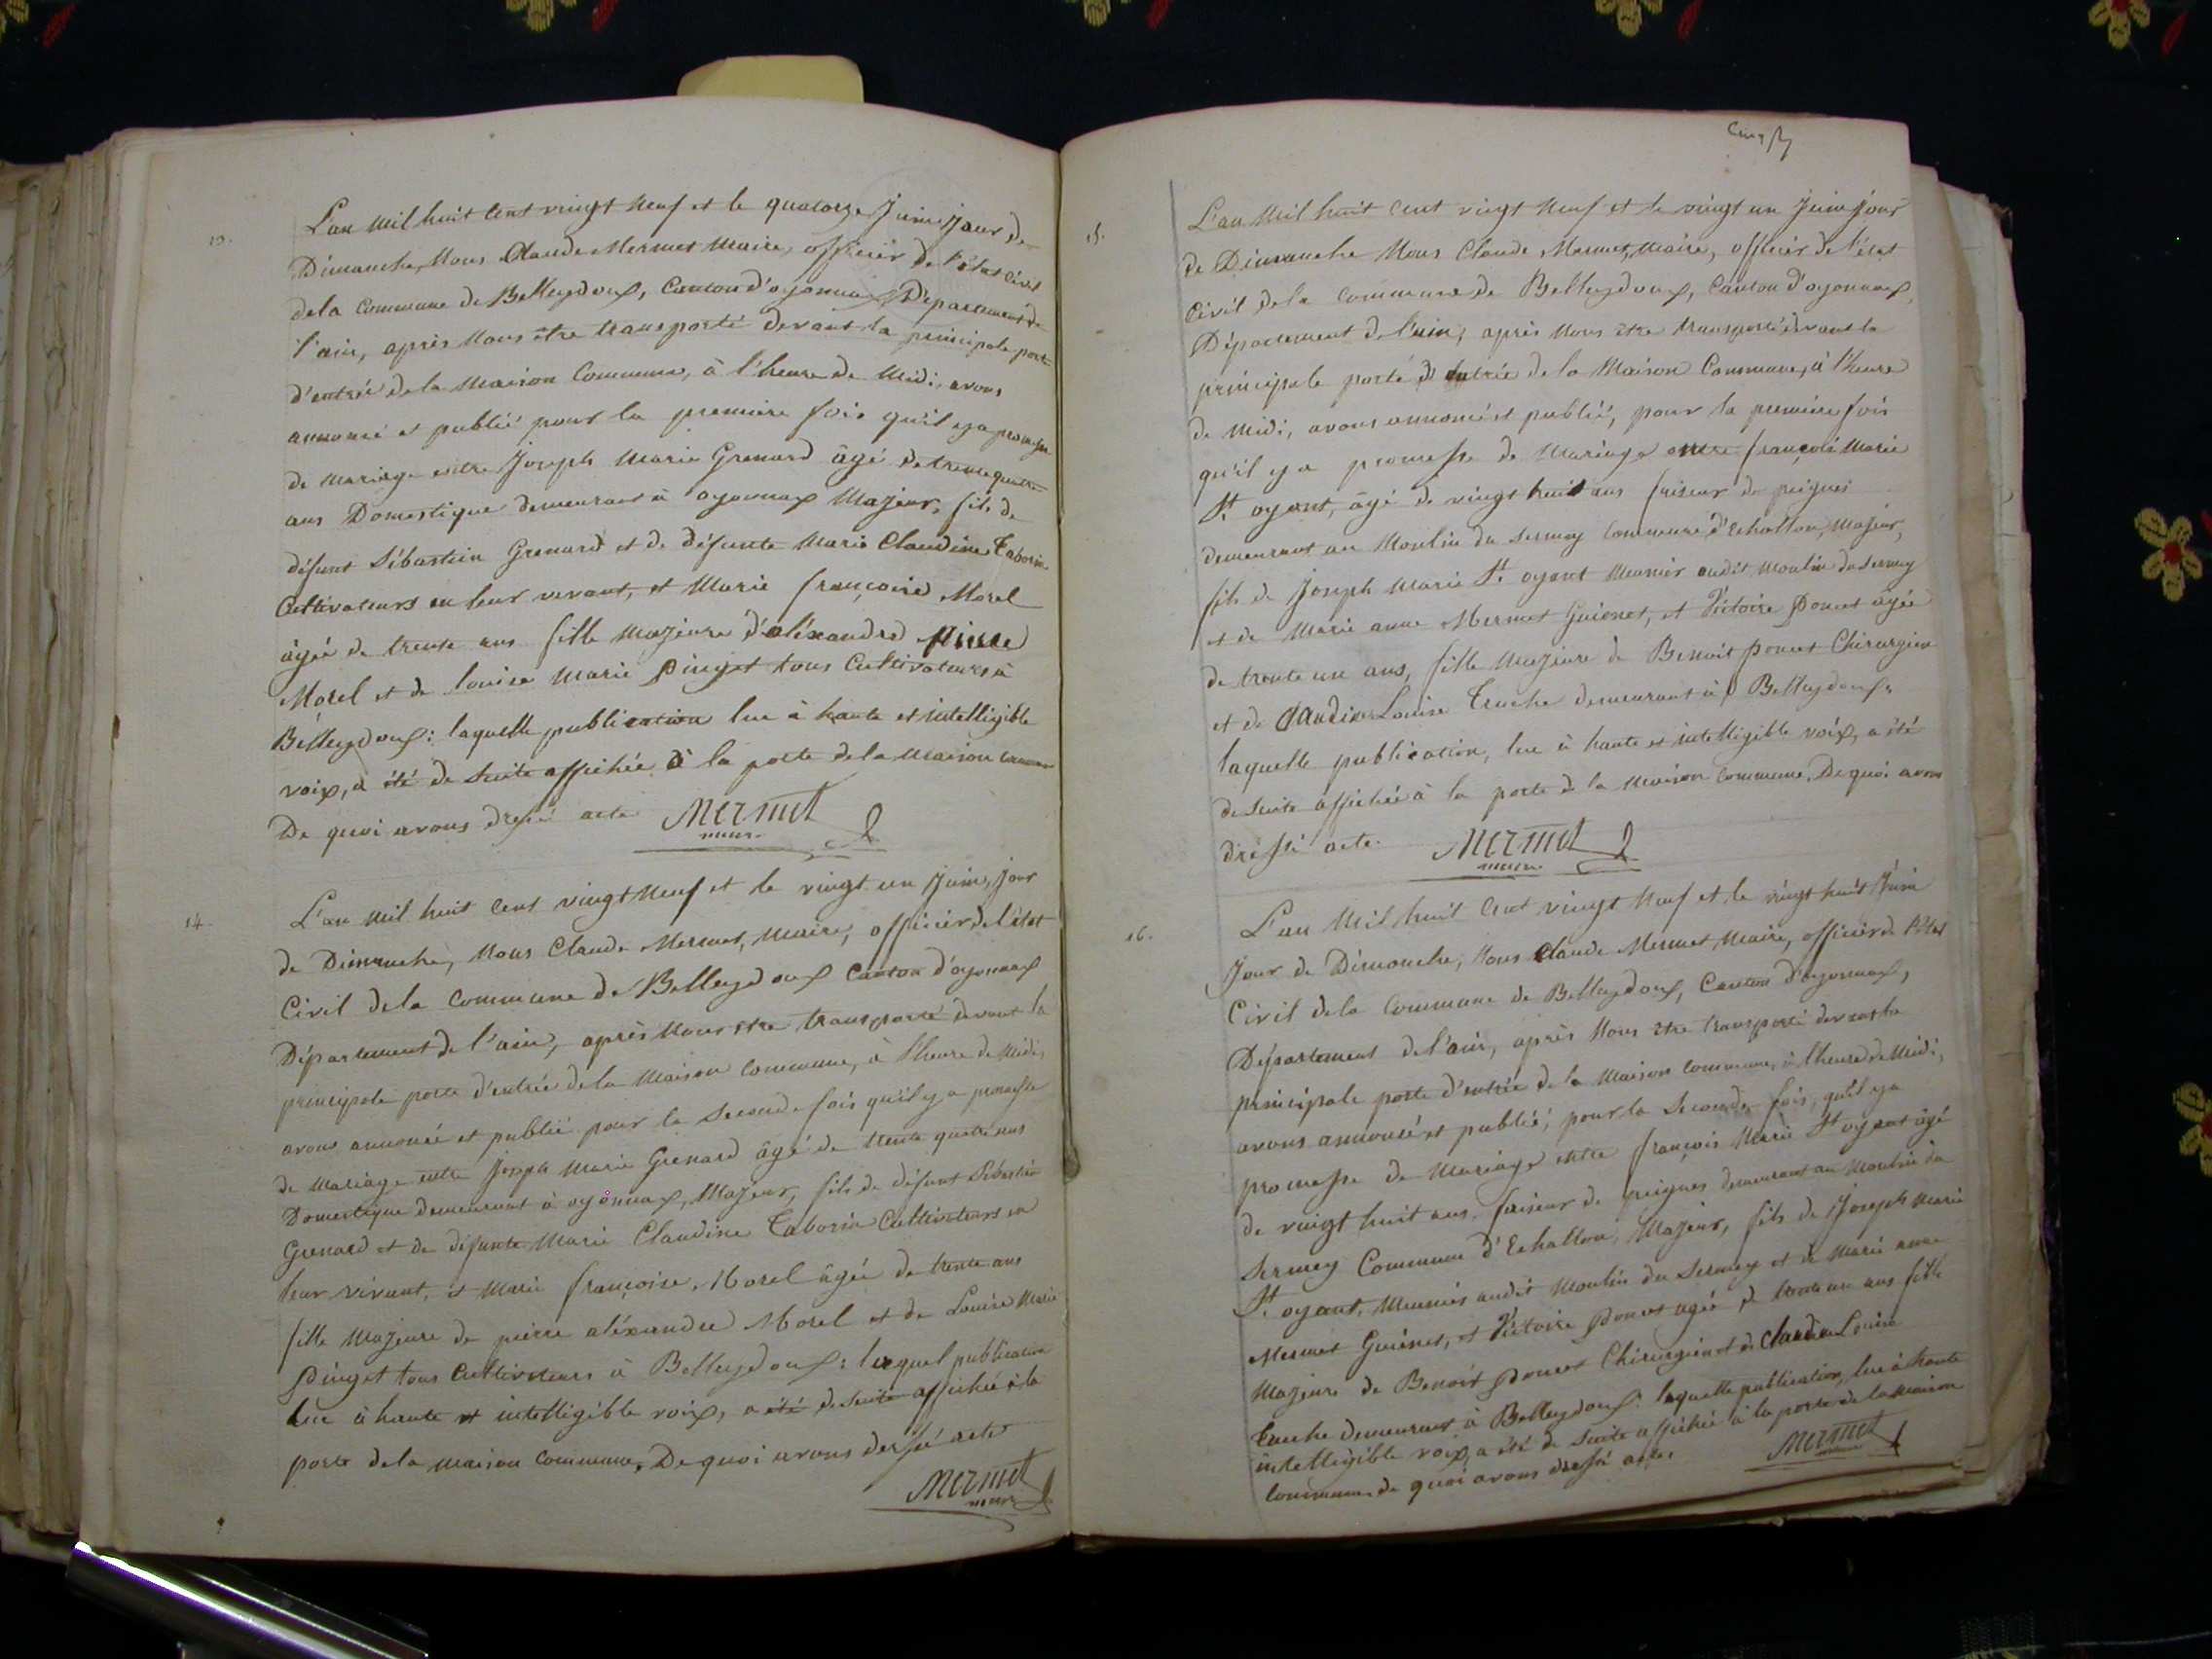 13.
L'an mil huit cent vingt neuf et le quatorze Juin, jour de
Dimanche, Nous Claude Mermet Maire, officier de l'état civil
de la Commune de Belleydoux, Canton d'oyonnax, Département de
l'ain, après Nous être transporté devant la principale porte
d'entrée de la Maison Commune, à l'heure de Midi, avons
annoncé et publié pour la première fois qu'il y a promesse
de Mariage entre Joseph Marie Grenard âgé de trente quatre
ans Domestique demeurant à oyonnax Majeur, fils de
défunt Sébastien Grenard et de défunte Marie Claudine Taborin
Cultivateurs en leur vivant, et Marie françoise Morel
âgée de trente ans fille Majeure d'aléxandre pierre
Morel et de louise Marie pinget tous Cultivateurs à
Belleydoux: laquelle publication lue à haute et intelligible
voix, a été de suite affichée à la porte de la Maison commune
De quoi avons dressé acte Mermet
maire
14.
L'an mil huit cent vingt neuf et le vingt un Juin, jour
de Dimanche, Nous Claude Mermet, Maire, officier de l'état
Civil de la Commune de Belleydoux Canton d'oyonnax
Département de l'ain, après Nous être transporté devant la
principale porte d'entrée de la Maison Commune, à l'heure de Midi,
avons annoncé et publié pour la seconde fois qu'il y a promesse
de Mariage entre Joseph Marie Grenard âgé de trente quatre ans
Domestique demeurant à oyonnax, Majeur, fils de défunt Sébastien
Grenard et de défunte Marie Claudine Taborin Cultivateurs en
leur vivant, et Marie françoise Morel âgée de trente ans
fille Majeure de pierre aléxandre Morel et de Louise Marie
pinget tous Cultivateurs à Belleydoux: laquel publication
lue à haute et intelligible voix, a été de suite affichée à la
porte de la maison Commune, De quoi avons dressé acte
Mermet
maire
15.
L'an Mil huit cent vingt neuf et le vingt un Juin jour
de Dimanche Nous Claude Mermet, Maire, officier de l'état
Civil de la Commune de Belleydoux, Canton d'oyonnax,
Département de l'ain, après Nous être transporté devant la
principale porte d'entrée de la Maison Commune, à l'heure
de Midi, avons annoncé et publié, pour la première fois
qu'il y a promesse de Mariage entre françois Marie
St. oyant, âgé de vingt huit ans faiseur de peignes
demeurant au Moulin du Sermey Commune d'Echallon, Majeur,
fils de Joseph Marie St. oyant Meunier audit Moulin du Sermey
et de Marie anne Mermet Guienet, et Victoire Poncet âgée
de trente un ans, fille Majeure de Benoit Poncet Chirurgien
et de Claudine Louise Truche demeurant à Belleydoux,
laquelle publication, lue à haute et intelligible voix, a été
de suite affichée à la porte de la Maison Commune, De quoi avons
dréssé acte. Mermet
maire
16.
L'an Mil huit Cent vingt Neuf et le vingt huit Juin
Jour de Dimanche, Nous Claude Mermet Maire, officier de l'état
Civil de la Commune de Belleydoux, Canton d'oyonnax,
Département de l'ain, après Nous être transporté devant la
principale porte d'entrée de la Maison Commune, à l'heure de Midi,
avons annoncé et publié, pour la seconde fois, qu'il y a
promesse de Mariage entre françois Marie St. oyant âgé
de vingt huit ans faiseur de peignes demeurant au Moulin du
Sermey Commune d'Echallon, Majeur, fils de Joseph Marie
St. oyant, Meunier audit Moulin du Sermey et de Marie anne
Mermet Guienet, et Victoire Poncet agée de trente un ans fille
Majeure de Benoit Poncet Chirurgien et de Claudine Louise
Truche demeurant à Belleydoux: laquelle publication, lue à haute
intelligible voix, a été de suite affichée à la porte de la Maison
Commune de quoi avons dressé acte. Mermet